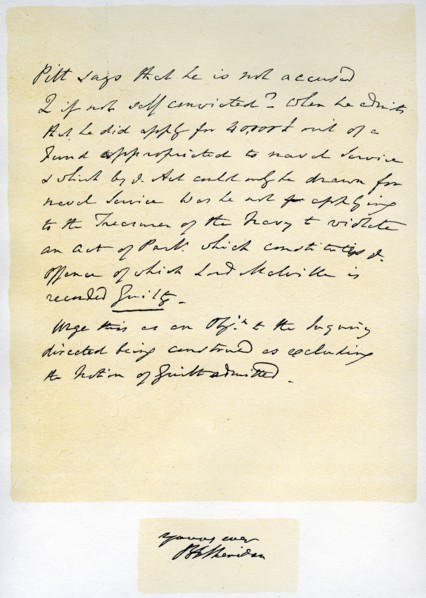 Pitt says that he is not accused
Q if not self convicted? When he admits
that he did apply for 40,000£ out of a
Fund appropriated to naval Service
& which by d. Act could only be drawn for
naval Service was he not applying
to the Treasurer of the Navy to violate
an act of Parlt. which constitutes d.
offence of which Lord Melville is
recorded Guilty.
Urge this as an Obj.n to the Inquiry
directed being construed as excluding
the Notion of Guilt admitted.
yours ever
R B Sheridan